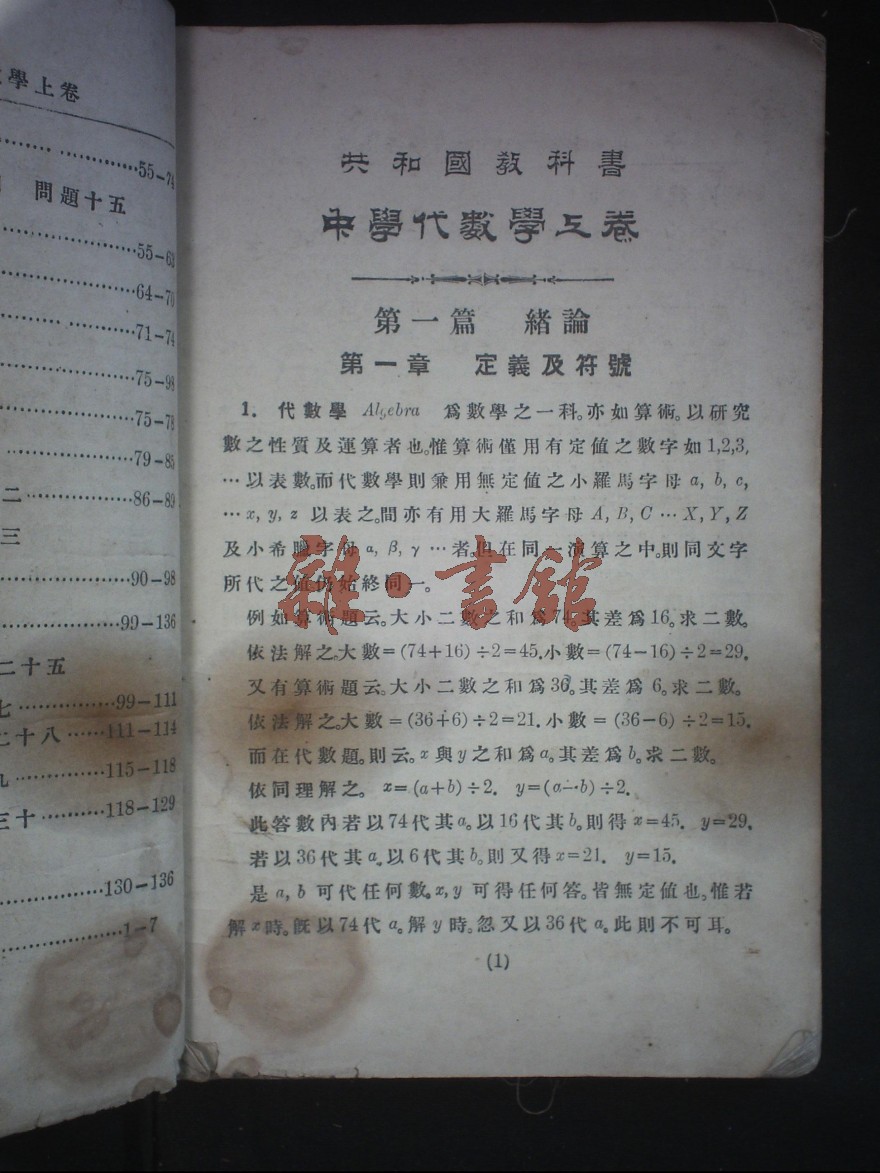 學上卷
55–74
問題十五
55–63
64–70
71–74
75–98
75–78
79–85
二 86–89
三
90–98
99–136
二十五
七 99–111
二十八 111–114
九 115–118
三十 118–129
130–136
1–7
共和國教科書
中學代數學上卷
第一篇 緒論
第一章 定義及符號
1. 代數學 Algebra 爲數學之一科。亦如算術。以研究
數之性質及運算者也。惟算術僅用有定值之數字如1,2,3,
…以表數。而代數學則兼用無定值之小羅馬字母 a, b, c,
…x, y, z 以表之。間亦有用大羅馬字母 A, B, C … X, Y, Z
及小希臘字母 α, β, γ …者。但在同一演算之中。則同文字
所代之值仍始終同一。
例如算術題云。大小二數之和爲74。其差爲16。求二數。
依法解之。大數=(74+16)÷2=45. 小數=(74–16)÷2=29.
又有算術題云。大小二數之和爲36。其差爲6。求二數。
依法解之。大數=(36+6)÷2=21. 小數=(36–6)÷2=15.
而在代數題。則云。x與y之和爲a。其差爲b。求二數。
依同理解之。 x=(a+b)÷2. y=(a–b)÷2.
此答數內若以74代其a。以16代其b。則得x=45. y=29.
若以36代其a。以6代其b。則又得x=21. y=15.
是 a, b 可代任何數。x, y 可得任何答。皆無定值也。惟若
解x時。旣以74代a。解y時。忽又以36代a。此則不可耳。
(1)
雜·書館